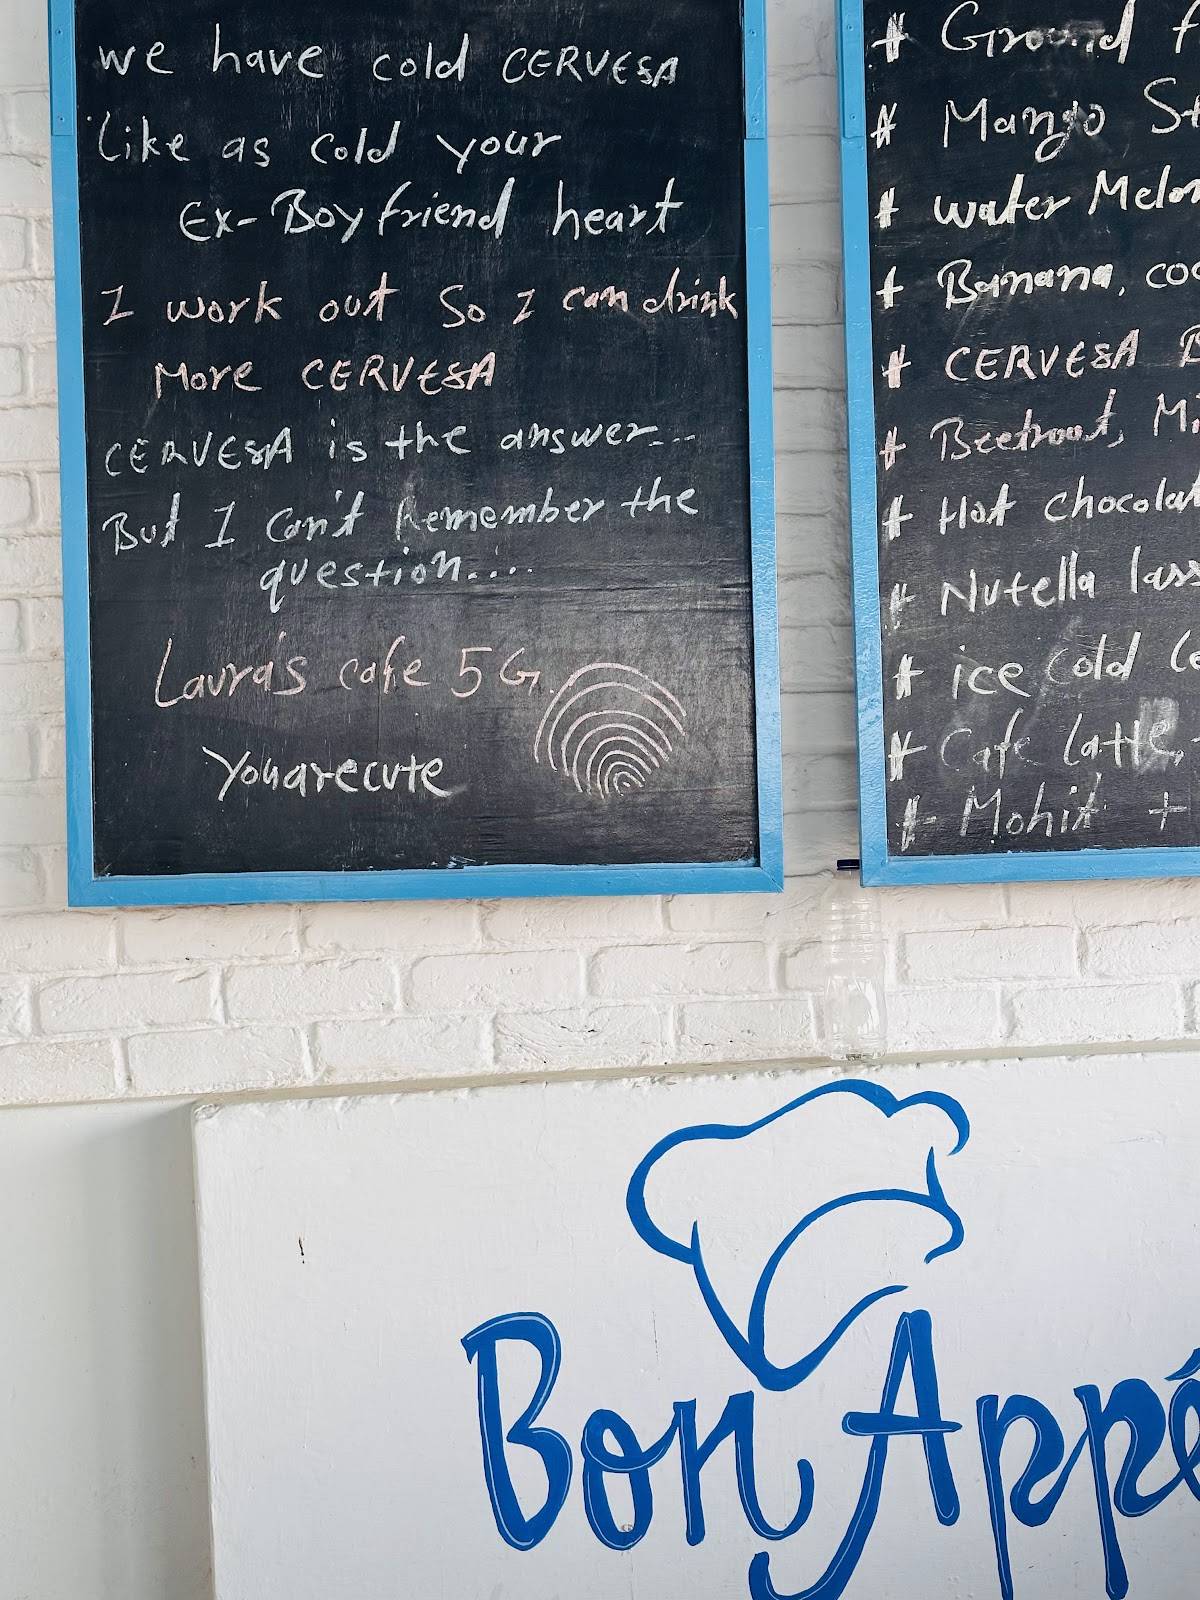 we have cold CERVESA
like as cold your
Ex-Boyfriend heart
I work out so I can drink
More CERVESA
CERVESA is the answer...
But I can't Remember the
question....
Laura's cafe 5G.
Youarecute
# Ground
# Mango
# water Melon
# Banana,
# CERVESA
# Beetroot,
# Hot chocolat
# Nutella lass
# ice cold
# Cafe latte,
# Mohit +
Bon Appé